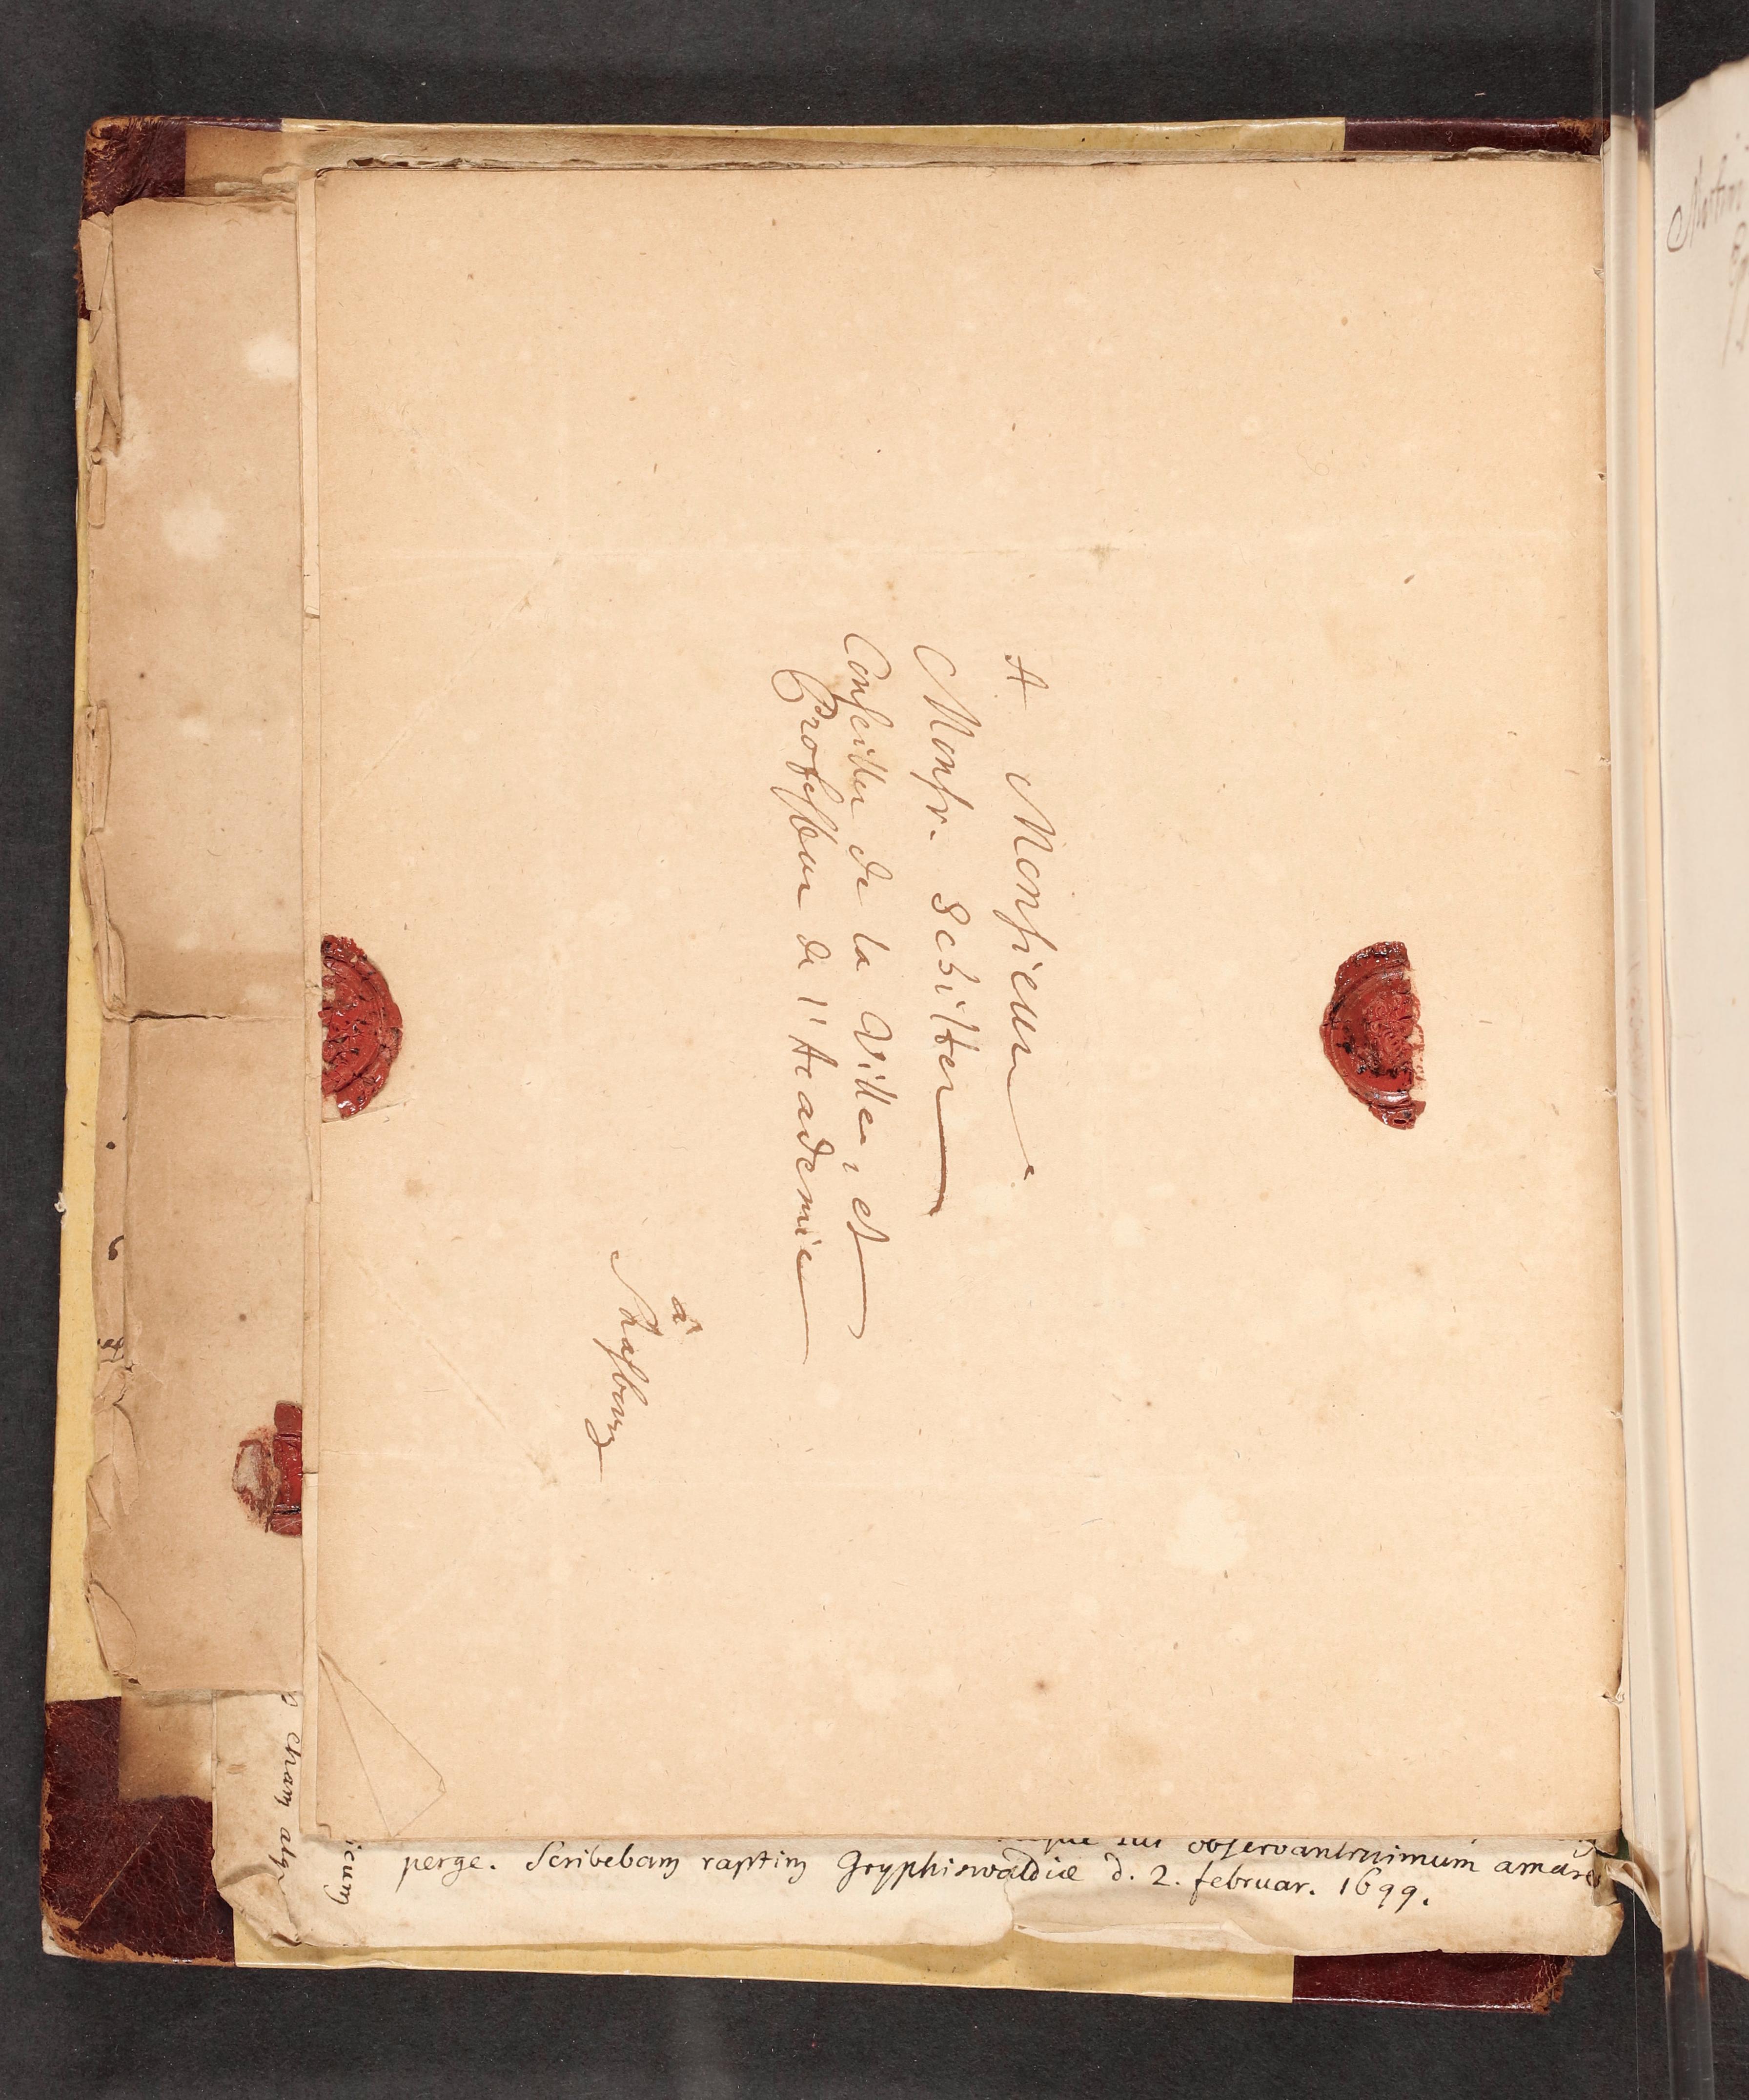 A Monsieur
Monsr. Schilter
Conseiller de la Ville, et
Professeur de l'Academie
à
Strasbourg
observantissimum amare
perge. Scribebam raptim Gryphiswaldiæ d. 2. februar. 1699.
icum